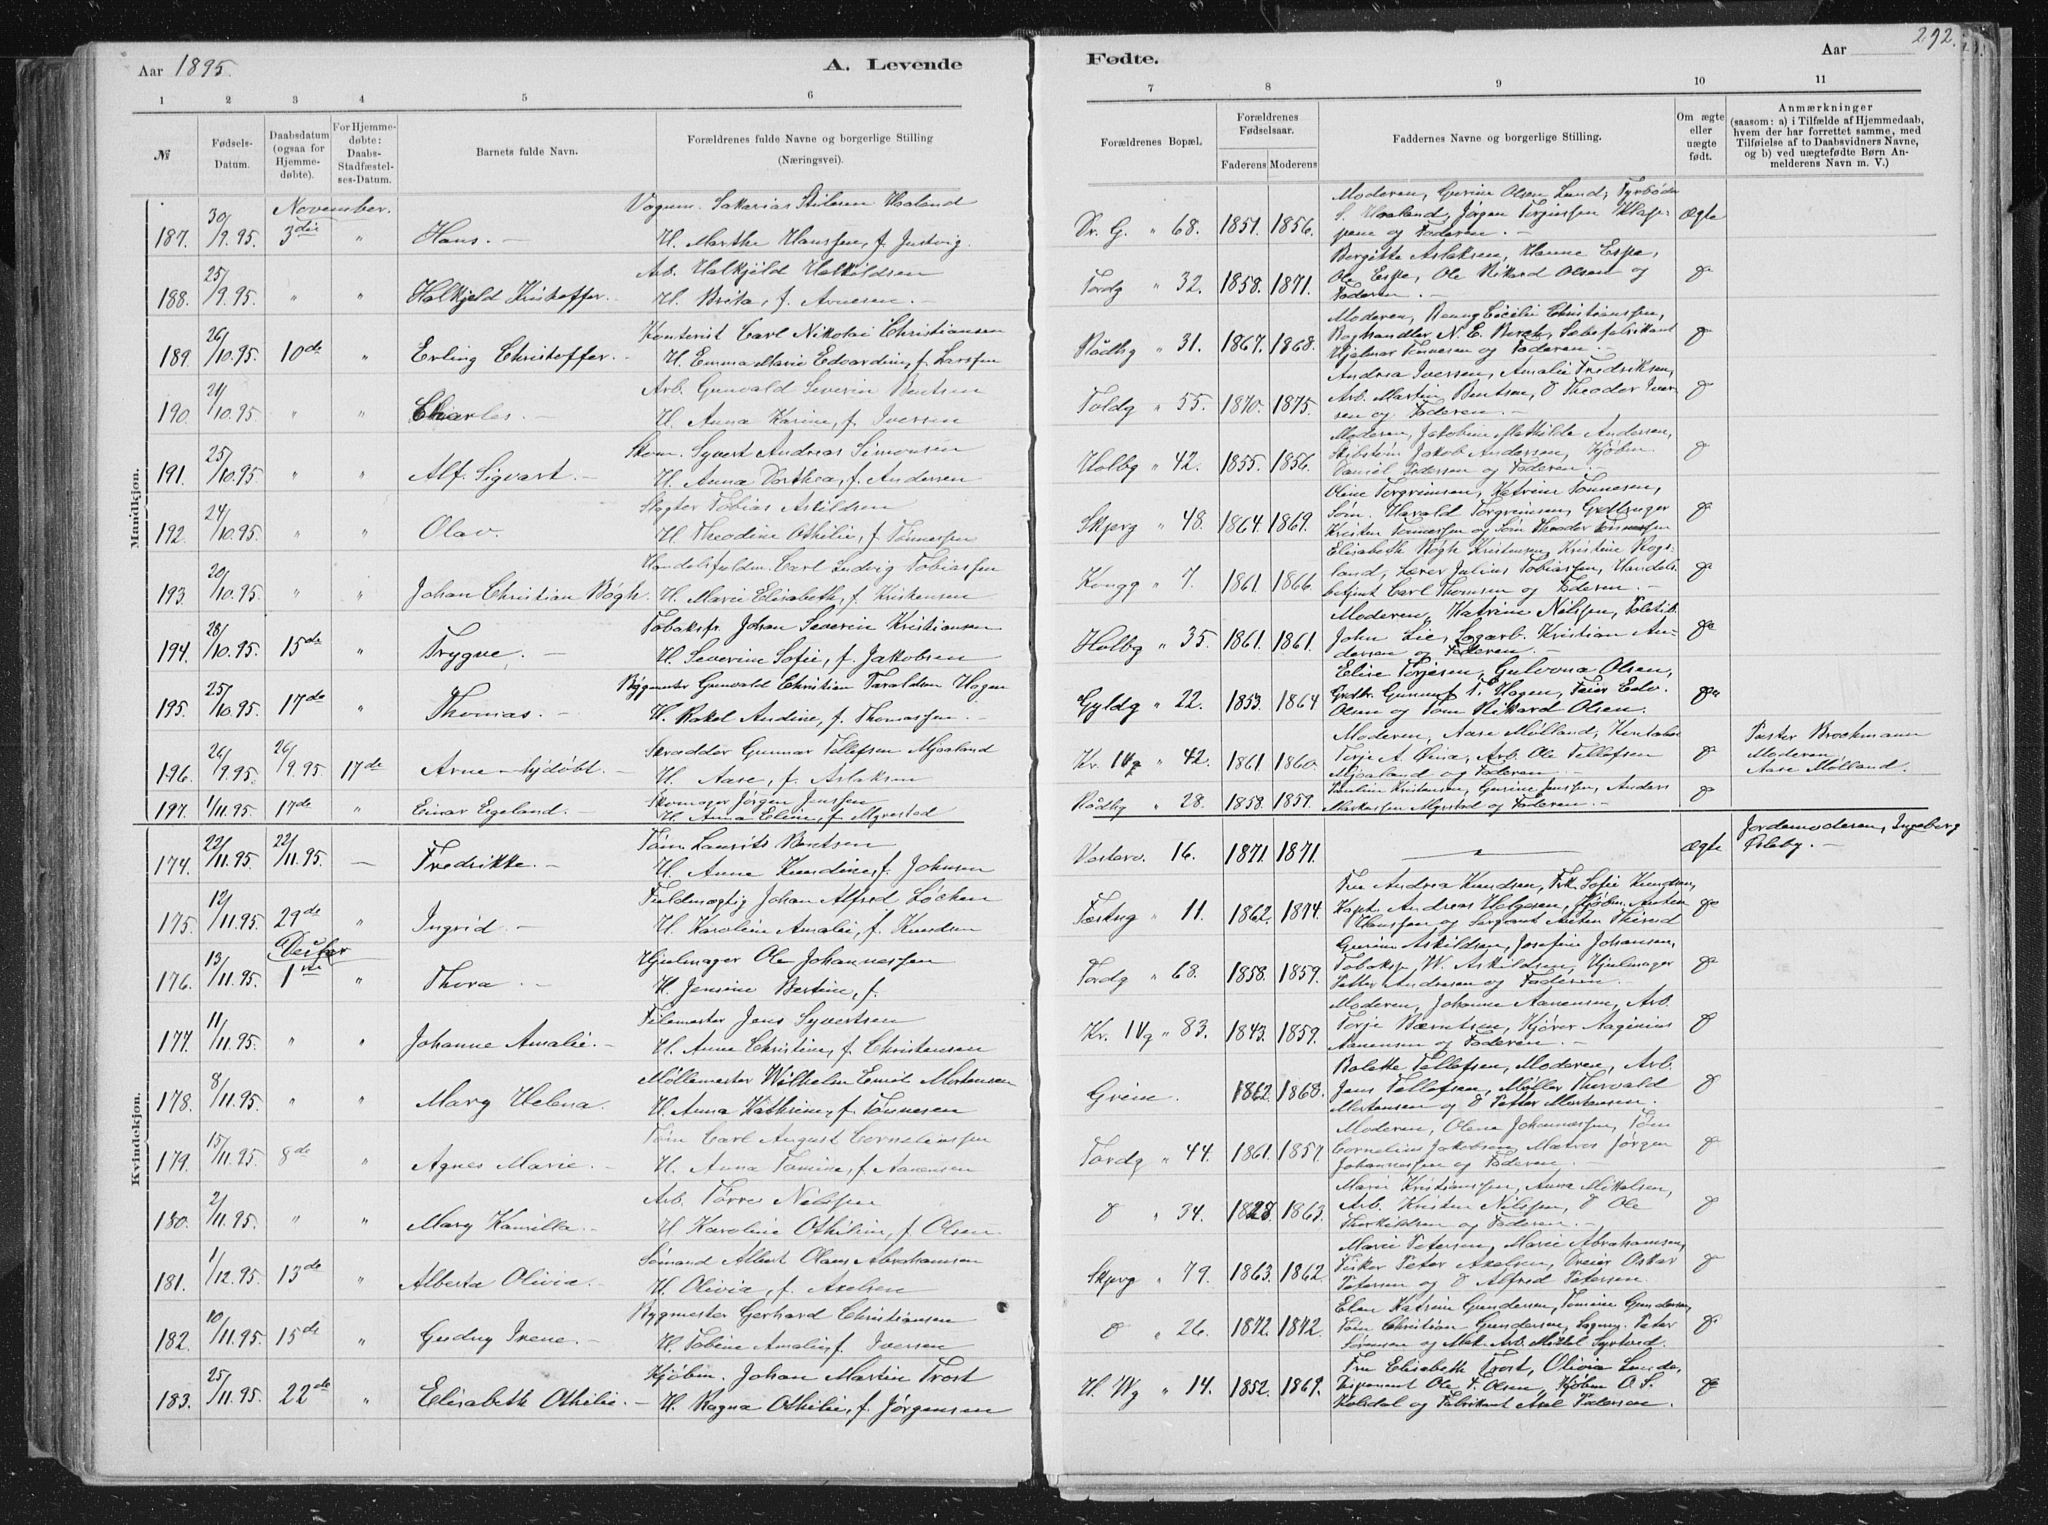 Aar 1895.
A. Levende
Fødte.
Aar
292.
1
2
3
4
5
6
7
8
9
10
11
№
Fødsels-
Datum.
Daabsdatum
(ogsaa for
Hjemme-
døbte).
For Hjemme-
døbte:
Daabs-
Stadfæstel-
ses-Datum.
Barnets fulde Navn.
Forældrenes fulde Navne og borgerlige Stilling
(Næringsvei).
Forældrenes Bopæl.
Forældrenes
Fødselsaar.
Faderens
Moderens
Faddernes Navne og borgerlige Stilling.
Om ægte
eller
uægte
født.
Anmærkninger
(saasom: a) i Tilfælde af Hjemmedaab,
hvem der har forrettet samme, med
Tilføielse af to Daabsvidners Navne,
og b) ved uægtefødte Børn An-
melderens Navn m. V.)
Mandkjøn.
November.
187. 30/9.95. 3die " Hans. —
Vognm. Sakarias Stilesen Haaland
H. Marthe Hanssen, f. Justvig.
Dr. G. " 68. 1851. 1856.
Moderen, Gurine Olsen Lund,
S. Haaland, Jørgen Torjussen
og Faderen. —
Ægte
188. 25/9.95. " " Halkjeld Kristoffer. —
Arb. Halkjeld Halkildsen
H. Brita, f. Arnesen. —
Tordg " 32. 1858. 1871.
Bergitte Aslaksen, Hanne Espe,
Ole Espe, Ole Rikard Olsen og
Faderen. —
189. 26/10.95. 10de " Erling Christoffer. —
Kontorist Carl Nikolai Christiansen
H. Emma Marie Edvardine, f. Larssen
Rådhg " 31. 1867. 1868.
Moderen, Cecilie Christianssen,
Boghandler N. E. Birch, Sæbefabrikant
Hjalmar Tønnesen og Faderen. —
190. 21/10.95 " " Charles. —
Arb. Gunvald Severin Bentsen
H. Anna Karine, f. Iversen
Toldg " 55. 1870. 1875.
Andrea Iversen, Amalie Fredriksen,
Arb. Martin Bentsen, Do Theodor Iver-
sen og Faderen. —
191. 25/10.95. " " Alf Sigvart. —
Skom. Syvert Andreas Simonsen
H. Anna Dorthea, f. Andersen
Holbg " 42. 1855. 1856.
Moderen, Jakobine Mathilde Andersen,
Skibstøm. Jakob Andersen, Kjøbm.
Daniel Pedersen og Faderen. —
192. 24/10.95. " " Olav.
Slagter Tobias Askildsen
H. Theodine Othilie, f. Tønnessen
Skjerg " 48. 1864. 1869.
Oline Torgrimsen, Katrine Tønnesen,
Søm. Harald Torgrimsen,
Kristen Tønnessen og Søm Theodor Tønnessen
193. 20/10.95. " " Johan Christian Bøgh.
Handelsfuldm. Carl Ludvig Tobiassen
H. Marie Elisabeth, f. Kristensen
Kongg " 7. 1861. 1866.
Elisabeth Bøgh Kristensen, Kristine Rogs-
land, Lærer Julius Tobiassen, Handels-
betjent Carl Thomsen og Faderen. —
194. 28/10.95. 15de " Trygve. —
Tobaksfr. Johan Severin Kristiansen
H. Severine Sofie, f. Jakobsen
Holbg " 35. 1861. 1861.
Moderen, Katrine Nilssen, Politib.
John Lie, Sagarb. Kristian An-
dersen og Faderen. —
195. 25/10.95. 17de " Thomas. —
Bygmester Gunvald Christian Taraldsen Hagen
H. Rakel Andine, f. Thomassen. —
Gyldg " 22. 1853. 1864
Elise Torjesen, Gulovna Olsen,
Grdbr. Gunnuf T. Hagen, Feier Edv.
Olsen og Tøm Rikkard Olsen.
196. 26/9.95 26/9.95 17de Arne — hjdøbt. —
Skrædder Gunnar Tellefsen Mjaaland
H. Aase, f. Aslaksen
Kr. IVg " 42. 1861 1860.
Moderen, Aase Mølland,
Terje A. , Arb. Ole Tellefsen
Mjaaland og Faderen. —
Pastor Brockmann
Moderen,
Aase Mølland.
197. 1/11.95 17de " Einar Egeland. —
Skomager Jørgen Jenssen
H. Anna Eline, f. Myrestad
Rådhg " 28. 1858. 1859.
Kristensen, Gurine Jenssen, Anders
Markussen Myrstad og Faderen. —
Kvindekjøn.
174. 22/11.95 22/11.95. — Fredrikke. —
Tøm. Laurits Bentsen
H. Anne Kundine, f. Johnsen
Vesterv. 16. 1871. 1871.
Ægte
Jordemoderen, Ingeborg
175. 12/11.95 29de " Ingrid. —
Fuldmægtig Johan Alfred Løchen
H. Karoline Amalie, f. Knudsen
Festng " 11. 1862. 1874.
Fru Andrea Knudsen, Frk. Sofie Knudsen,
Kapt. Andreas Helgesen, Kjøbm. Anton
Hanssen og Sergant Anton
Decbr
176. 13/11.95. 1ste " Thora. —
Hjulmager Ole Johannessen
H. Jensine Bertine, f.
Tordg " 68. 1858. 1859.
Gurine Askildsen, Josefine Johansen,
Tobaksp. W. Askildsen, Hjulmager
Petter Andresen og Faderen. —
177. 11/11.95. " " Johanne Amalie. —
Filemester Jens Syvertsen
H. Anne Christine, f. Christensen
Kr. IVg " 83. 1843. 1859.
Moderen, Johanne Aanensen, Arb.
Terje Berntsen, Kjører Aagenius
Aanensen og Faderen. —
178. 8/11.95. " " Mary Helena.
Møllemester Wilhelm Emil Mortensen
H. Anna Kathrine, f. Tønnesen
Grim. 1862. 1868.
Bolette Tellefsen, Moderen, Arb.
Jens Tellefsen, Møller Thorvald
Mortensen og Do Petter Mortensen.
179. 15/11.95 8de " Agnes Marie. —
Tøm Carl August Corneliussen
H. Anna Tomine, f. Aanensen
Tordg " 44. 1861. 1857.
Moderen, Olena Johannessen, Tøm
Cornelius Jakobsen, Matros Jørgen
Johannessen og Faderen. —
180. 2/11.95. " " Mary Kamilla. —
Arb. Tørre Nilssen
H. Karoline Othilie, f. Olsen.
Do " 34. 1828. 1863.
Marie Kristianssen, Anna Mikalsen,
Arb. Kristen Nilssen, Do Ole
Thorkildsen og Faderen. —
181. 1/12.95. 13de " Alberta Olivia. —
Sømand Albert Olaus Abrahamsen
H. Olivia, f. Axelsen
Skjerg " 79. 1863. 1862.
Marie Petersen, Marie Abrahamsen,
Fisker Peter Axelsen, Dreier Oskar
Petersen og Do Alfred Petersen.
182. 10/11.95. 15de " Gudny Irene. —
Bygmester Gerhard Christiansen
H. Tobine Amalie, f. Iversen
Do " 26. 1842. 1842.
Elen Katrine Gundersen, Tomine Gundersen,
Tøm Christian Gundersen, Sagmg. Peter
Sørensen og Mek. Arb.
183. 25/11.95. 22de " Elisabeth Othilie. —
Kjøbm. Johan Martin Trost
H. Ragna Othilie, f. Jørgensen
H. Wg " 14. 1852. 1869.
Fru Elisabeth Trost, Olivia Lunde,
Disponent Ole F. Olsen, Kjøbm O. S.
Kolsdal og Fabrikant Axel Pedersen.